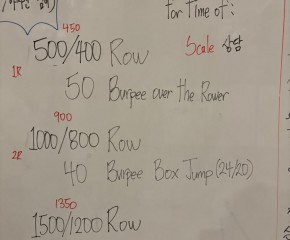 for Time of:
450
500/400 Row
Scale 상담
1R
50 Burpee over the Rower
900
1000/800 Row
2R
40 Burpee Box Jump (24/20)
1350
1500/1200 Row